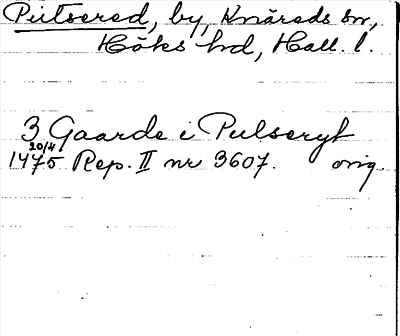 Putsered, by, Knäreds sn,
Höks hd, Hall. l.
3 Gaarde i Pulseryt
20/4
1475 Rep. II nr 3607. orig.